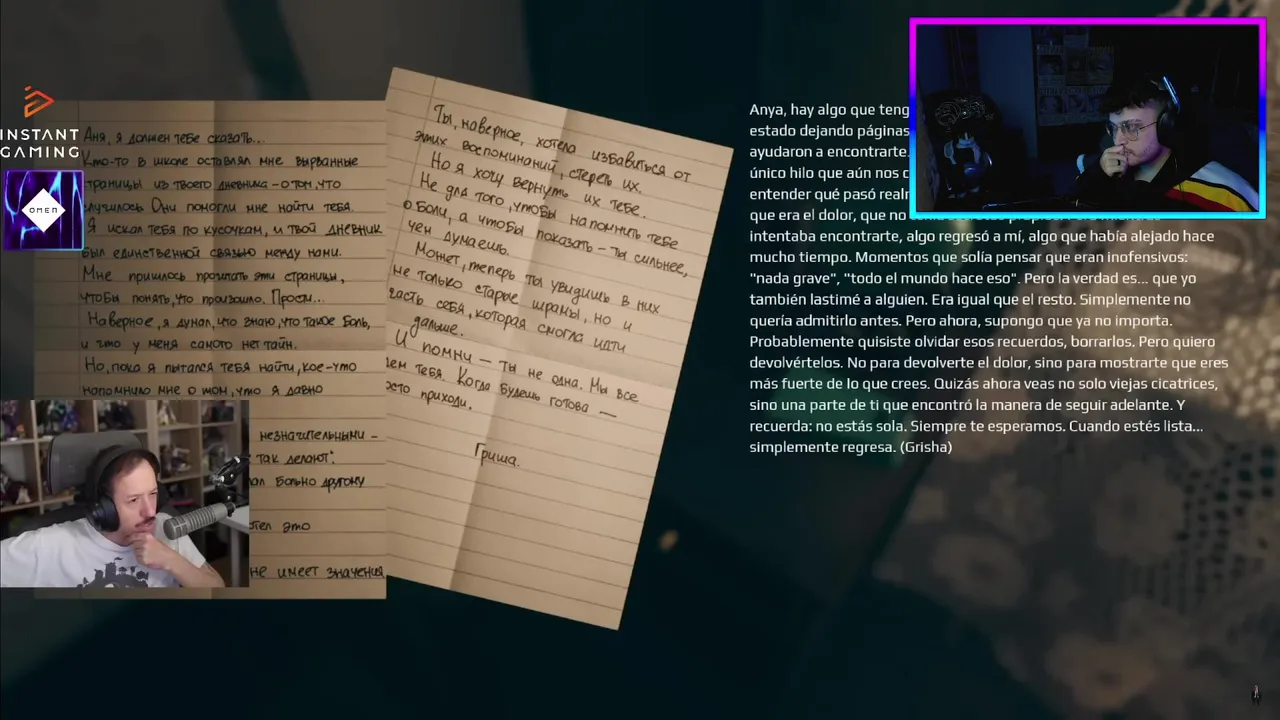 INSTANT
GAMING
OMEN
Аня, я должен тебе сказать...
Кто-то в школе оставлял мне вырванные
страницы из твоего дневника – о том, что
случилось. Они помогли мне найти тебя.
Я искал тебя по кусочкам, и твой дневник
был единственной связью между нами.
Мне пришлось прочитать эти страницы,
чтобы понять, что произошло. Прости...
Наверное, я думал, что знаю, что такое боль,
и что у меня самого нет тайн.
Но, пока я пытался тебя найти, кое-что
напомнило мне о том, что я давно
незначительными –
так делают".
больно другому
это
не имеет значения
Ты, наверное, хотела избавиться от
этих воспоминаний, стереть их.
Но я хочу вернуть их тебе.
Не для того, чтобы напомнить тебе
о боли, а чтобы показать – ты сильнее,
чем думаешь.
Может, теперь ты увидишь в них
не только старые шрамы, но и
часть себя, которая смогла идти
дальше.
И помни – ты не одна. Мы все
тебя. Когда будешь готова –
приходи.
Гриша.
Anya, hay algo que teng
estado dejando páginas
ayudaron a encontrarte.
único hilo que aún nos c
entender qué pasó realr
que era el dolor, que no
intentaba encontrarte, algo regresó a mí, algo que había alejado hace
mucho tiempo. Momentos que solía pensar que eran inofensivos:
"nada grave", "todo el mundo hace eso". Pero la verdad es... que yo
también lastimé a alguien. Era igual que el resto. Simplemente no
quería admitirlo antes. Pero ahora, supongo que ya no importa.
Probablemente quisiste olvidar esos recuerdos, borrarlos. Pero quiero
devolvértelos. No para devolverte el dolor, sino para mostrarte que eres
más fuerte de lo que crees. Quizás ahora veas no solo viejas cicatrices,
sino una parte de ti que encontró la manera de seguir adelante. Y
recuerda: no estás sola. Siempre te esperamos. Cuando estés lista...
simplemente regresa. (Grisha)